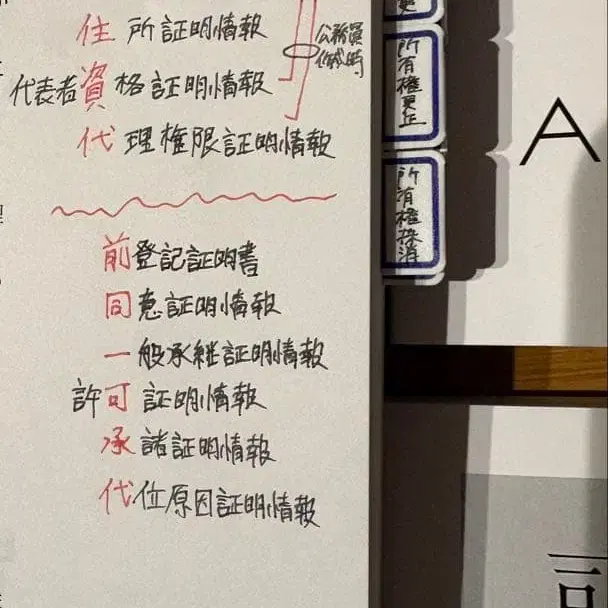 住所証明情報
代表者資格証明情報
代理権限証明情報
公務員
作成時
前登記証明書
同意証明情報
一般承継証明情報
許可証明情報
承諾証明情報
代位原因証明情報
更
所有権更正
所有権抹消
A